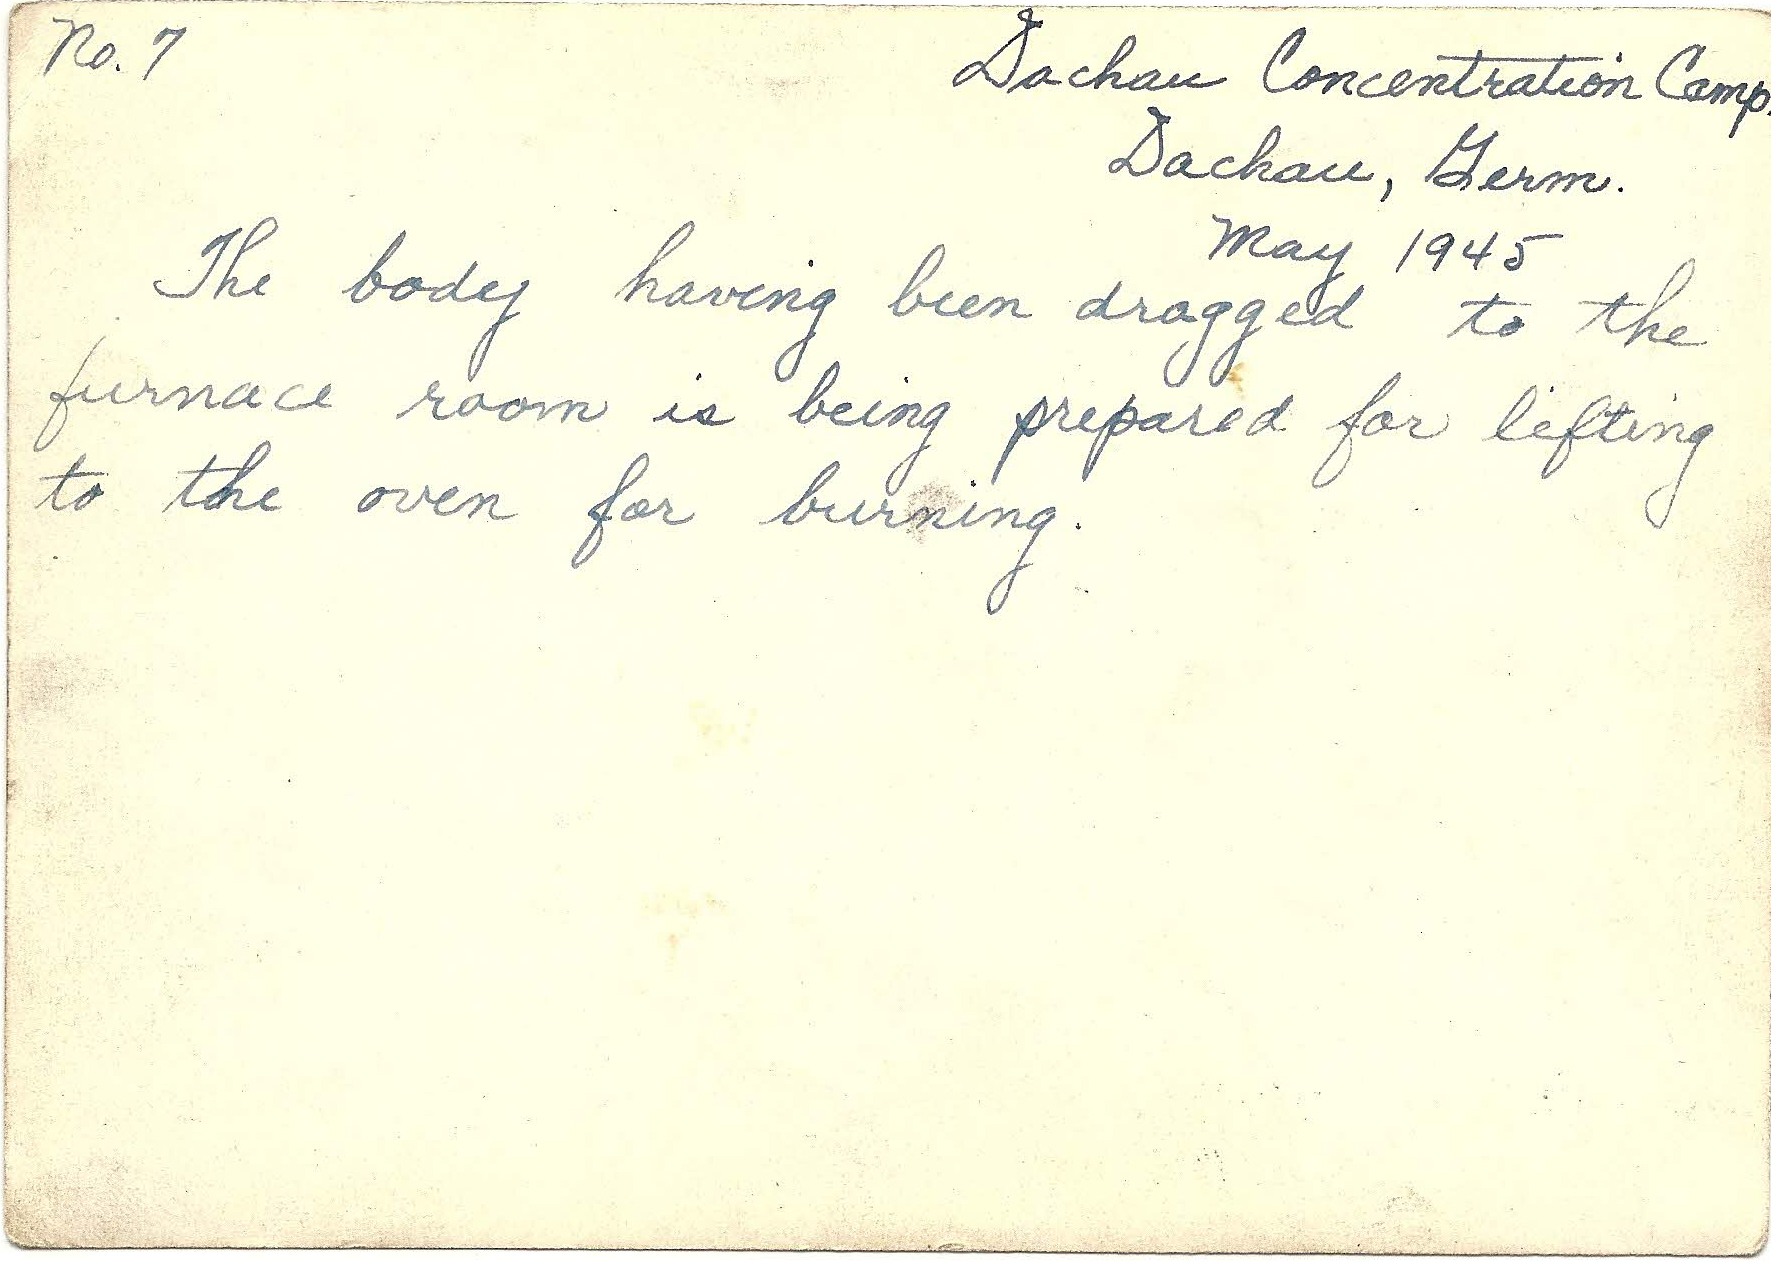 No. 7
Dachau Concentration Camp.
Dachau, Germ.
May 1945
The body having been dragged to the
furnace room is being prepared for lifting
to the oven for burning.